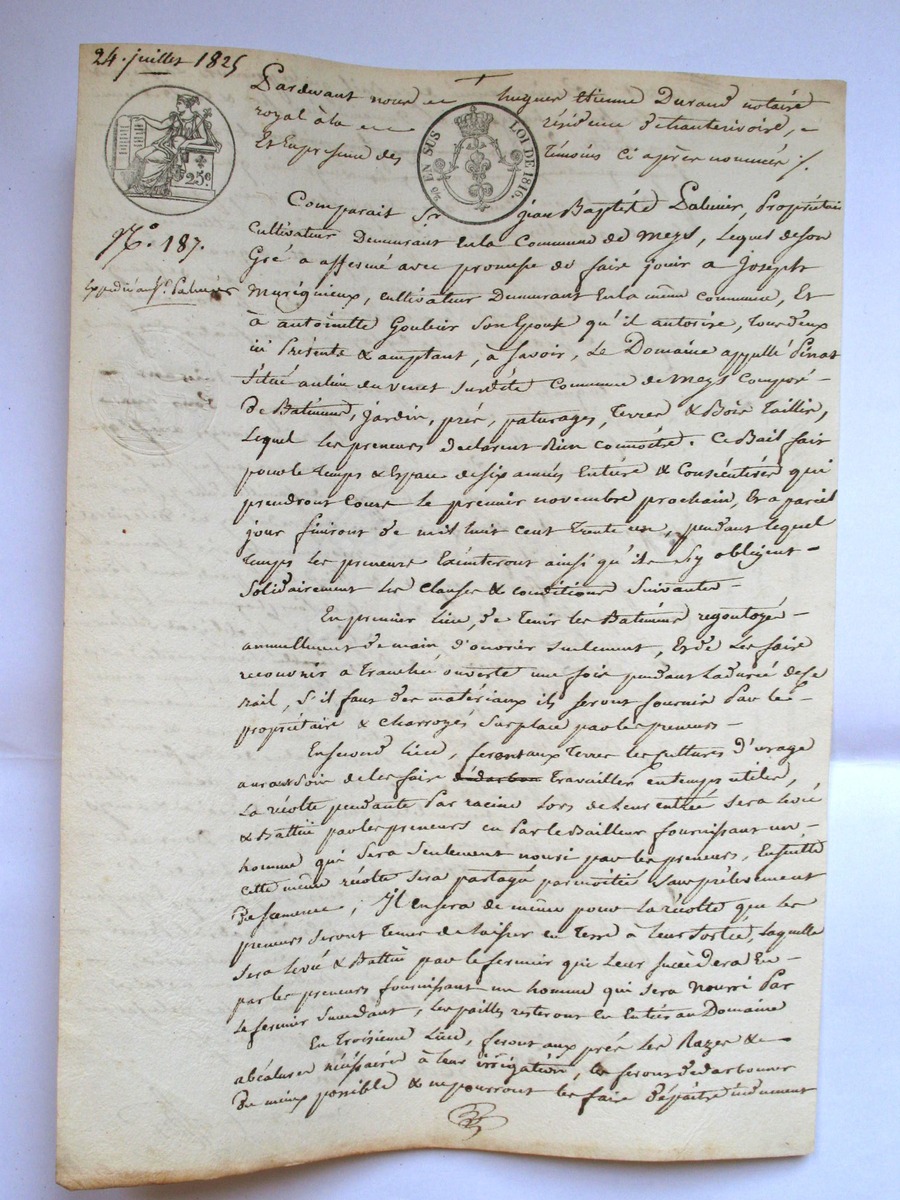 24. juillet 1825
Pardevant nous hugues Etienne Durand notaire
royal à la résidence de chanterivoire,
Et En presence des Témoins ci après nommés /.
25c.
20 EN SUS LOI DE 1816.
N.º 187.
Expédié à Sr. Palmier
Comparait Sr jean Baptiste Palmier, Propriétaire
Cultivateur Demeurant En la Commune de Meys, Lequel de son
Gré a affermé avec promesse de faire jouir a Joseph
Murigneux, cultivateur Demeurant En la même commune, Et
à antoinette Goulein Son Epouse qu'il autorise, tous deux
ici Présents & acceptant, à Savoir, Le Domaine appellé Pinat
Situé au lieu du Susdite Commune de Meys composé
De Batimens, jardin, prés, paturages, Terres & Bois Taillis,
Lequel les preneurs declarent Bien connoitre. Ce Bail fait
pour le temps & Espace de six années Entière & Consécutives qui
prendront Cours le premier novembre prochain, Et a pareil
jour finiront de mil huit cent trente un, pendant lequel
temps les preneurs Exécuteront ainsi qu'ils s'y obligent
Solidairement les clauses & conditions Suivantes
En premier Lieu, de Tenir les Batimens regoutoyés
annuellement de main d'ouvrier seulement, Et de les faire
recouvrir à tranchée ouverte une fois pendant la durée de ce
Bail, S'il faut des matériaux ils seront fournis Par le
propriétaire & charroyés Sur place par les preneurs
En Second Lieu, feront aux Terres les cultures d'usage
auront Soin de les faire Travailler en temps utiles,
La récolte pendante Par racine Lors de Leur entrée sera levée
& Battue par les preneurs en Par le Bailleur fournissant un
homme qui Sera Seulement nouri par les preneurs, Ensuitte
cette même récolte sera partagée par moitié Sans prélevement
de semence ; Il en sera de même pour la récolte que les
preneurs seront Tenus de laisser en Terre à leur Sortie, laquelle
Sera levée & Battue par le fermier qui Leur Succèdera En
par les preneurs fournissant un homme qui sera nourri Par
Le fermier Succedant, les pailles resteront En Entier au Domaine
En Troisieme Lieu, feront aux prés les Razes &
abéalures nécéssaires à leur irrigation, les feront dedarbonner
de mieux possible & ne pourront les faire dépaitre indument